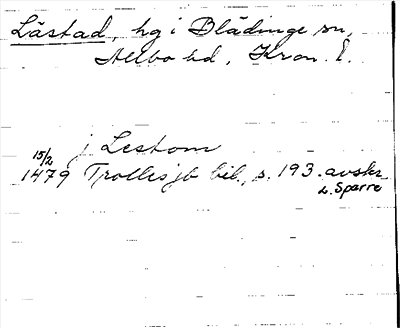 Låstad, hg i Blädinge sn,
Allbo hd, Kron. l.
j Lestom
15/2
1479 Trolles jb bil., s. 193. avskr.
L. Sparre